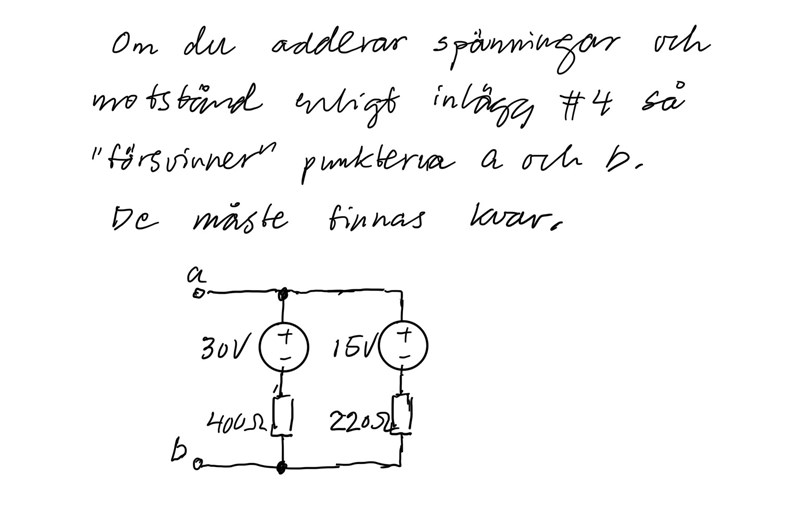 Om du adderar spänningar och
motstånd enligt inlägg #4 så
"försvinner" punkterna a och b.
De måste finnas kvar.
a
+
-
30V
+
-
15V
400Ω
220Ω
b